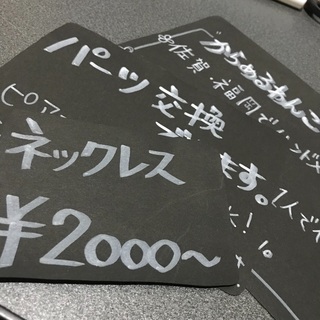 ネックレス
¥2000〜
パーツ交換
ピア
"からめるわんこ
佐賀、福岡でハンド
ます。
1人で